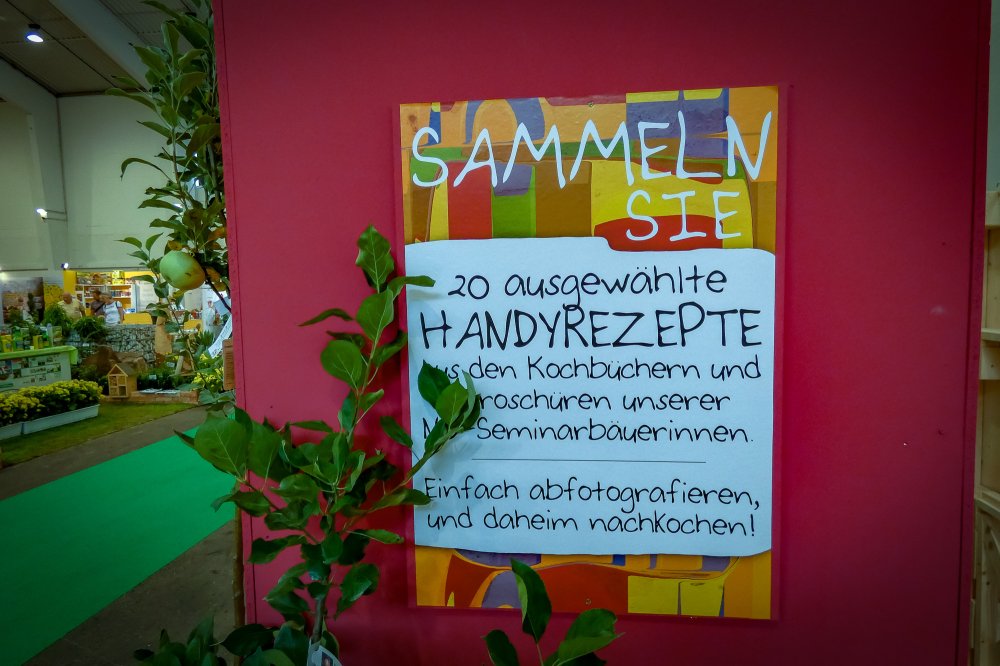 SAMMELN
SIE
20 ausgewählte
HANDYREZEPTE
den Kochbüchern und
unserer
Seminarbäuerinnen.
Einfach abfotografieren,
und daheim nachkochen!